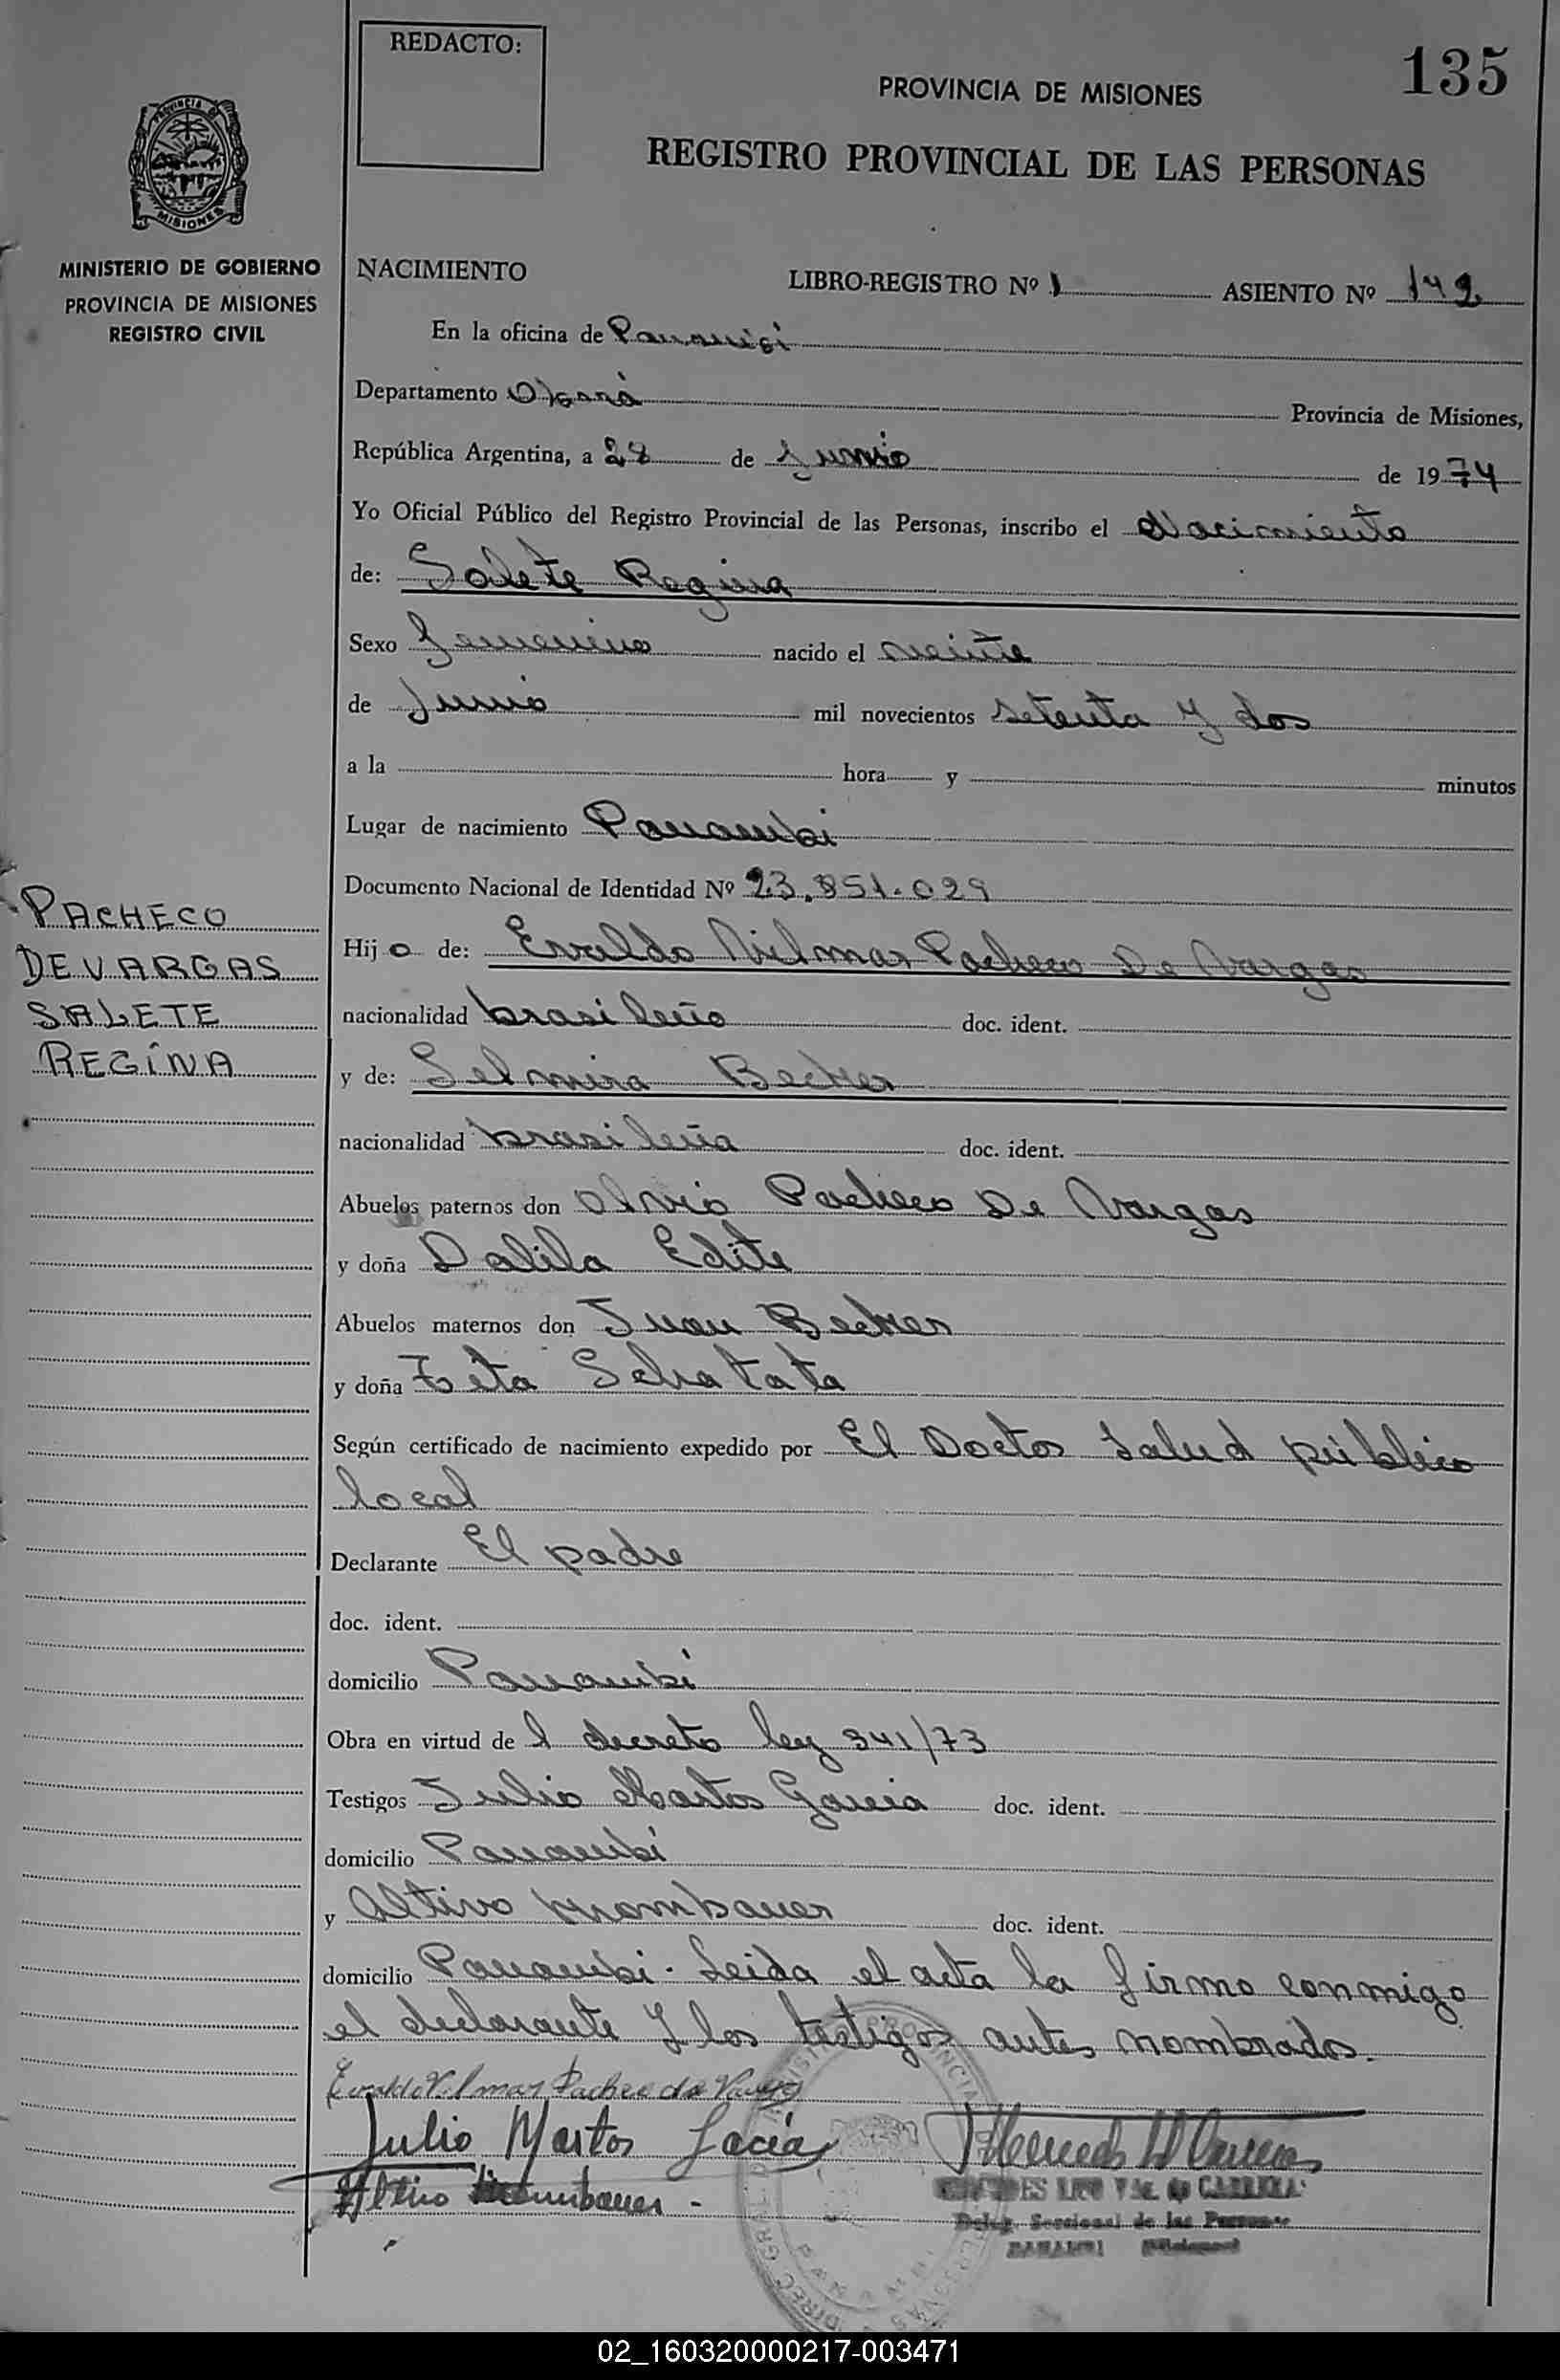 REDACTO:
135
PROVINCIA DE MISIONES
REGISTRO PROVINCIAL DE LAS PERSONAS
PROVINCIA DE
MISIONES
MINISTERIO DE GOBIERNO
PROVINCIA DE MISIONES
REGISTRO CIVIL
NACIMIENTO LIBRO-REGISTRO Nº 1 ASIENTO Nº 142
En la oficina de Panambi
Departamento Oberá Provincia de Misiones,
República Argentina, a 28 de Junio de 1974
Yo Oficial Público del Registro Provincial de las Personas, inscribo el Nacimiento
de: Salete Regina
Sexo Femenino nacido el veinte
de Junio mil novecientos setenta y dos
a la hora y minutos
Lugar de nacimiento Panambi
Documento Nacional de Identidad Nº 23.851.029
PACHECO
DE VARGAS
SALETE
REGÍNA
Hij a de: Evaldo Vilmar Pacheco De Vargas
nacionalidad brasileño doc. ident.
y de: Selmira Becker
nacionalidad brasileña doc. ident.
Abuelos paternos don Olvio Pacheco De Vargas
y doña Dalila Edite
Abuelos maternos don Juan Becker
y doña
Según certificado de nacimiento expedido por El Doctor Salud público
local
Declarante El padre
doc. ident.
domicilio Panambi
Obra en virtud de l decreto ley 341/73
Testigos Julio Martos Garcia doc. ident.
domicilio Panambi
y Altivo Krombauer doc. ident.
domicilio Panambi. Leida el acta la firmo conmigo
el declarante y los testigos antes nombrados.
Evaldo Vilmar Pacheco de Vargas
Julio Martos Gacia
Altivo
DE CABRERA
Deleg. Seccional de las Personas
PANAMBI (Misiones)
02_160320000217-003471